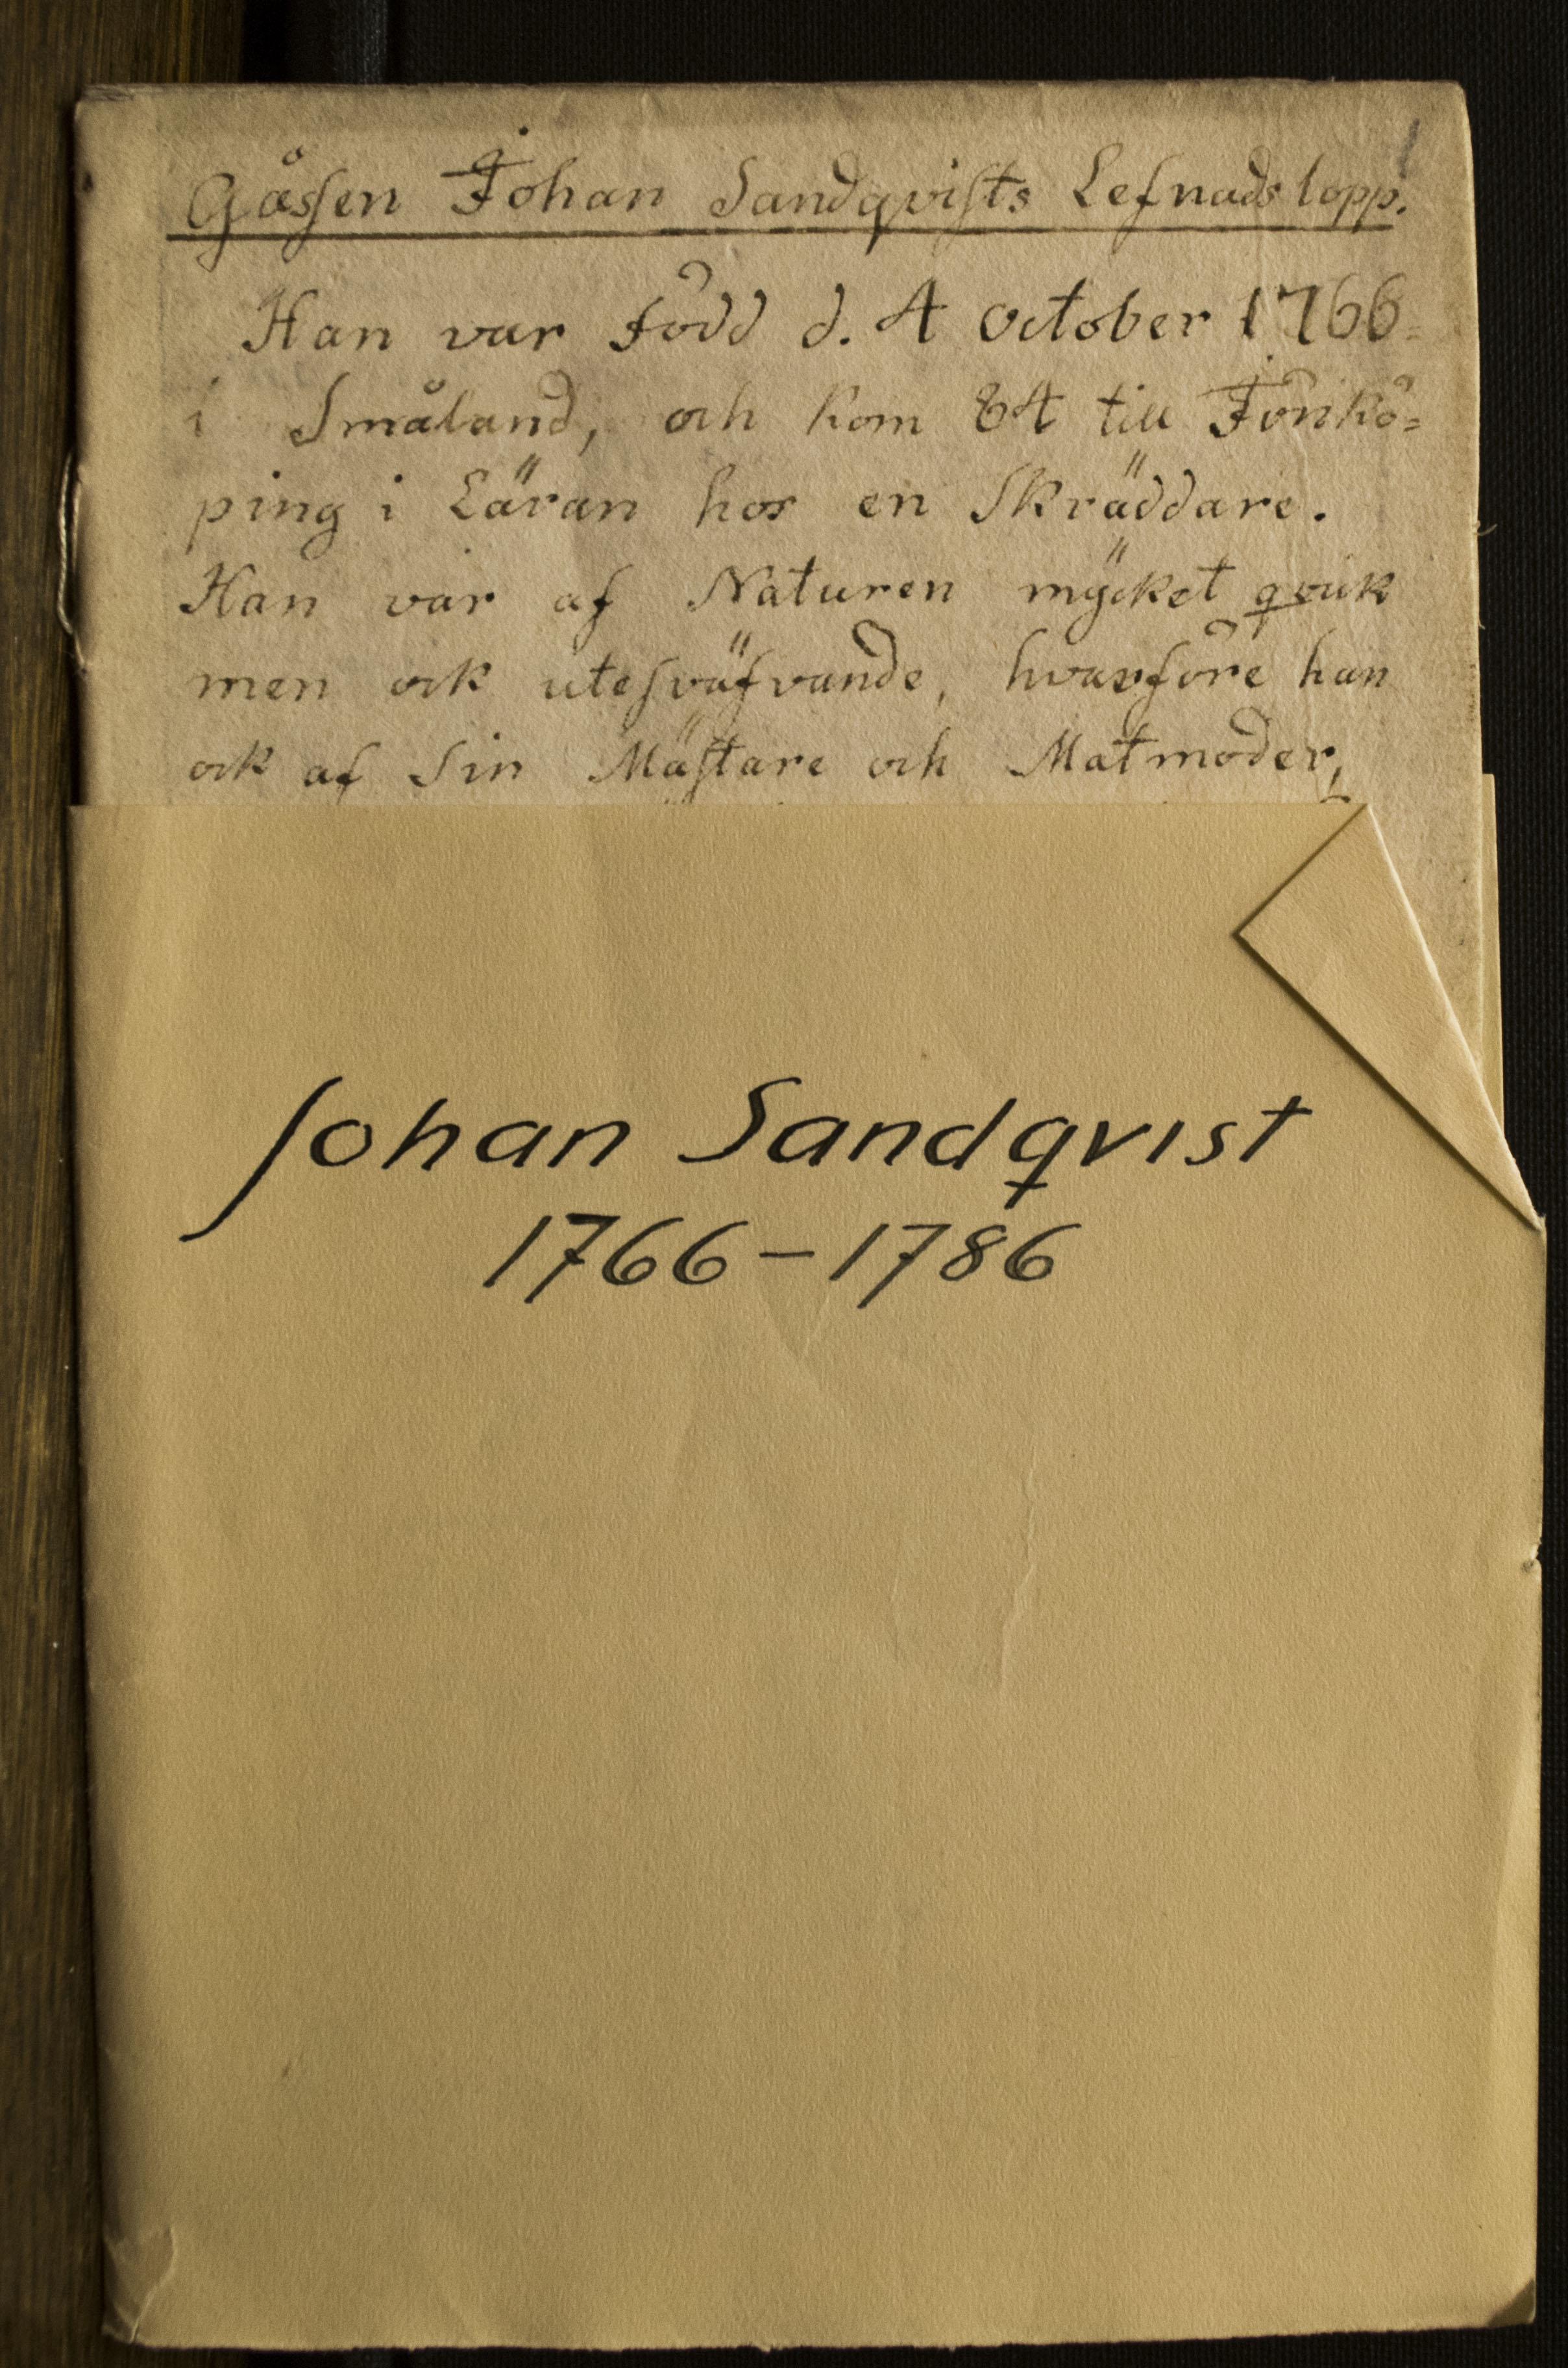 Gåssen Johan Sandqvists Lefnadslopp.
Han var född d. 4 October 1766
i Småland, och kom 84 till Jönkö=
ping i Läran hos en Skräddare.
Han var af Naturen mÿcket qvick
men ock utesväfvande, hvarföre han
ock af Sin Mästare och Matmoder,
Johan Sandqvist
1766-1786